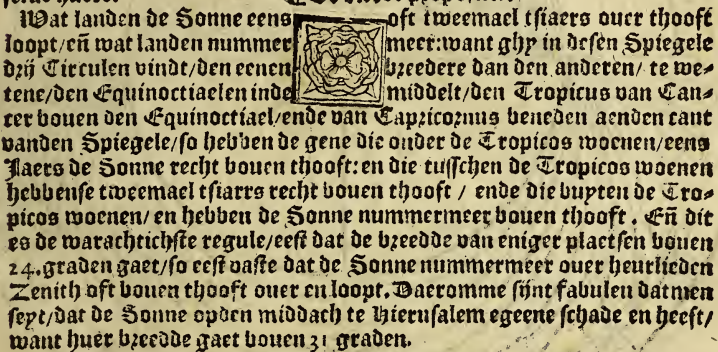 Wat landen de Sonne eens oft tweemael tsiaers ouer thooft
loopt/en̄ wat landen nummermeer: want ghy in desen Spiegele
drij Circulen vindt/den eenen breedere dan den anderen/ te we⸗
tene/den Equinoctiaelen inde middelt/den Tropicus van Can⸗
cer bouen den Equinoctiael/ende van Capricornus beneden aenden cant
vanden Spiegele/so hebben de gene die onder de Tropicos woenen/eens
Jaers de Sonne recht bouen thooft: en die tusschen de Tropicos woenen
hebbense tweemael tsiaers recht bouen thooft / ende die buyten de Tro⸗
picos woenen/ en hebben de Sonne nummermeer bouen thooft. En̄ dit
es de warachtichste regule/eest dat de breedde van eniger plaetsen bouen
24. graden gaet/so eest vaste dat de Sonne nummermeer ouer heurlieden
Zenith oft bouen thooft ouer en loopt. Daeromme sijnt fabulen datmen
seyt/dat de Sonne opden middach te Hierusalem egeene schade en heeft/
want huer breedde gaet bouen 31 graden.